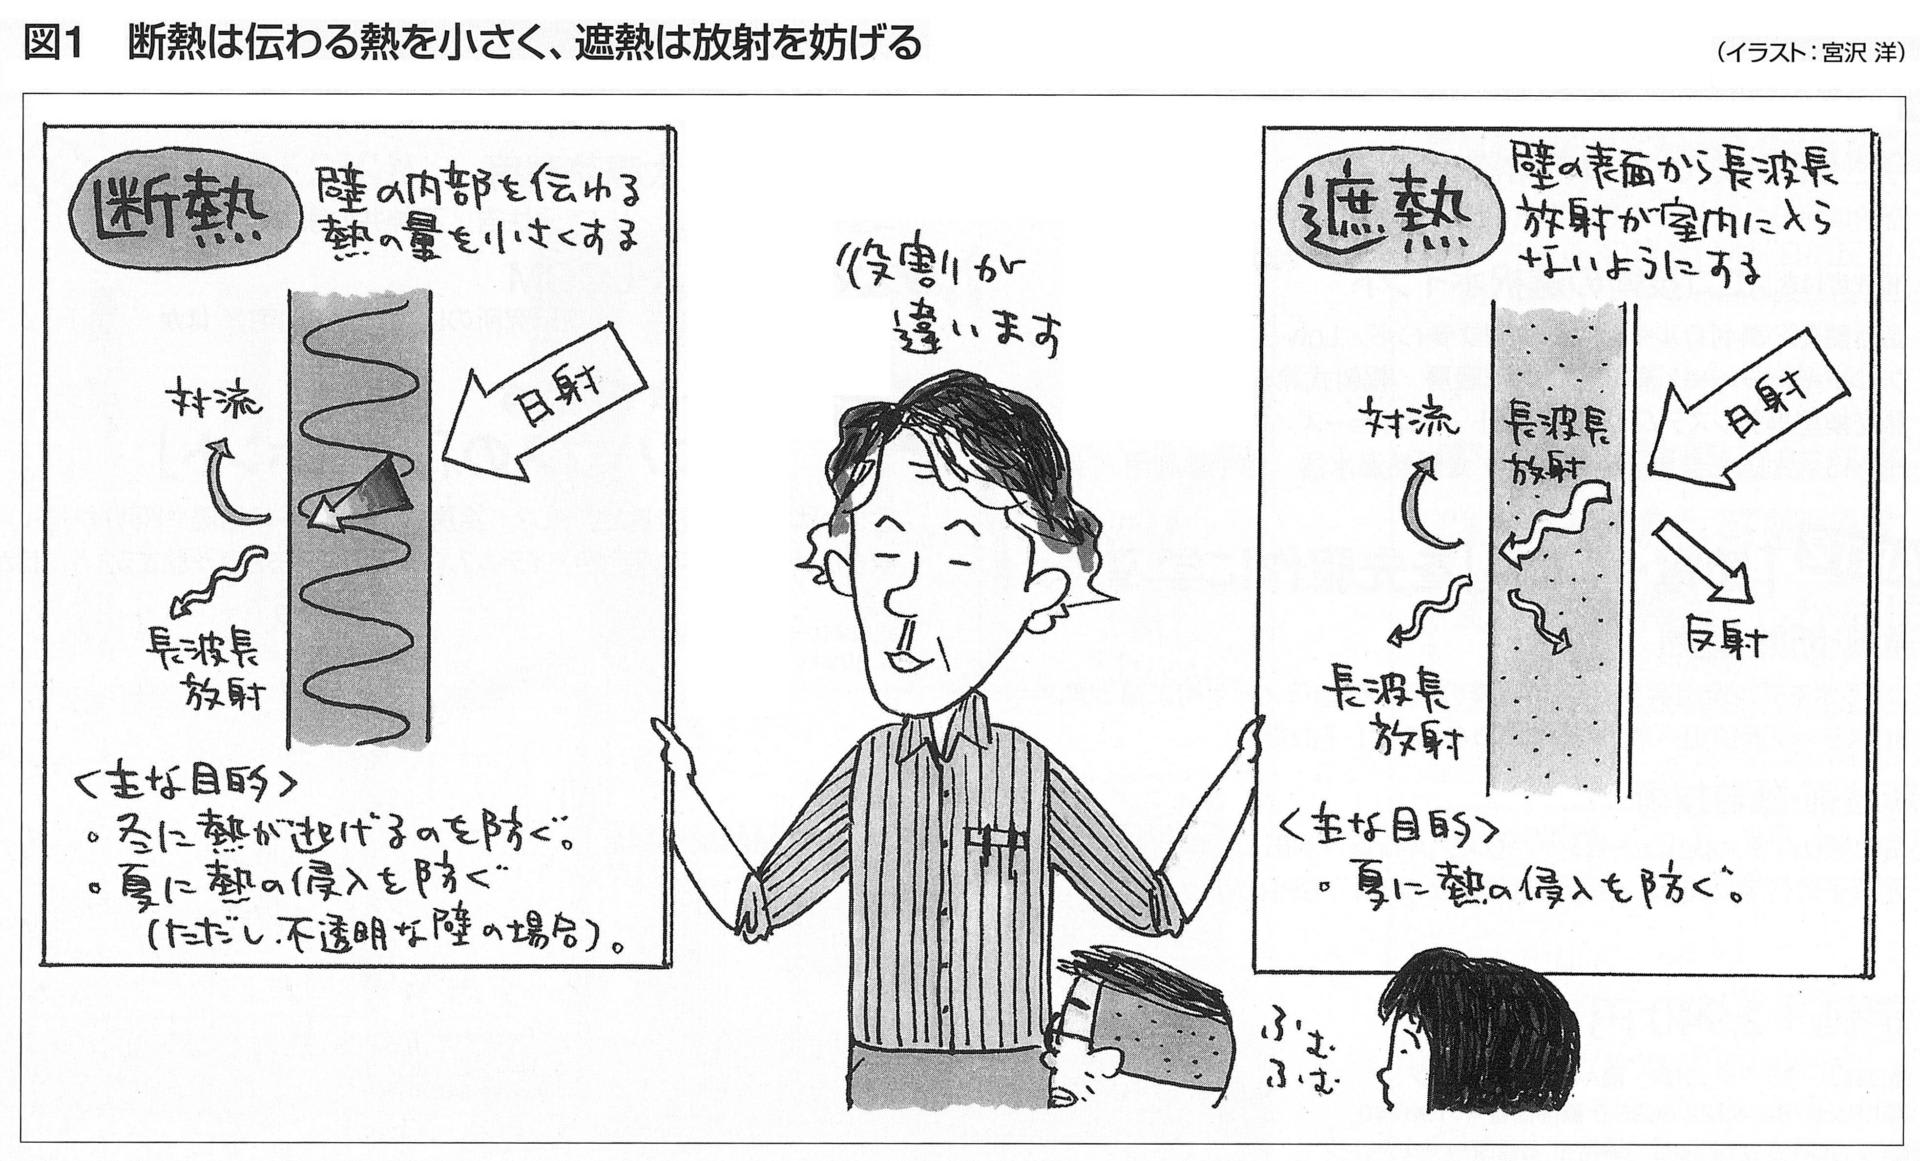 図1 断熱は伝わる熱を小さく、遮熱は放射を妨げる
(イラスト：宮沢 洋)
断熱
壁の内部を伝わる
熱の量を小さくする
日射
対流
長波長
放射
<主な目的>
。冬に熱が逃げるのを防ぐ。
。夏に熱の侵入を防ぐ
(ただし、不透明な壁の場合)。
役割が
違います
遮熱
壁の表面から長波長
放射が室内に入ら
ないようにする
日射
対流
長波長
放射
反射
長波長
放射
<主な目的>
。夏に熱の侵入を防ぐ。
ふむ
ふむ